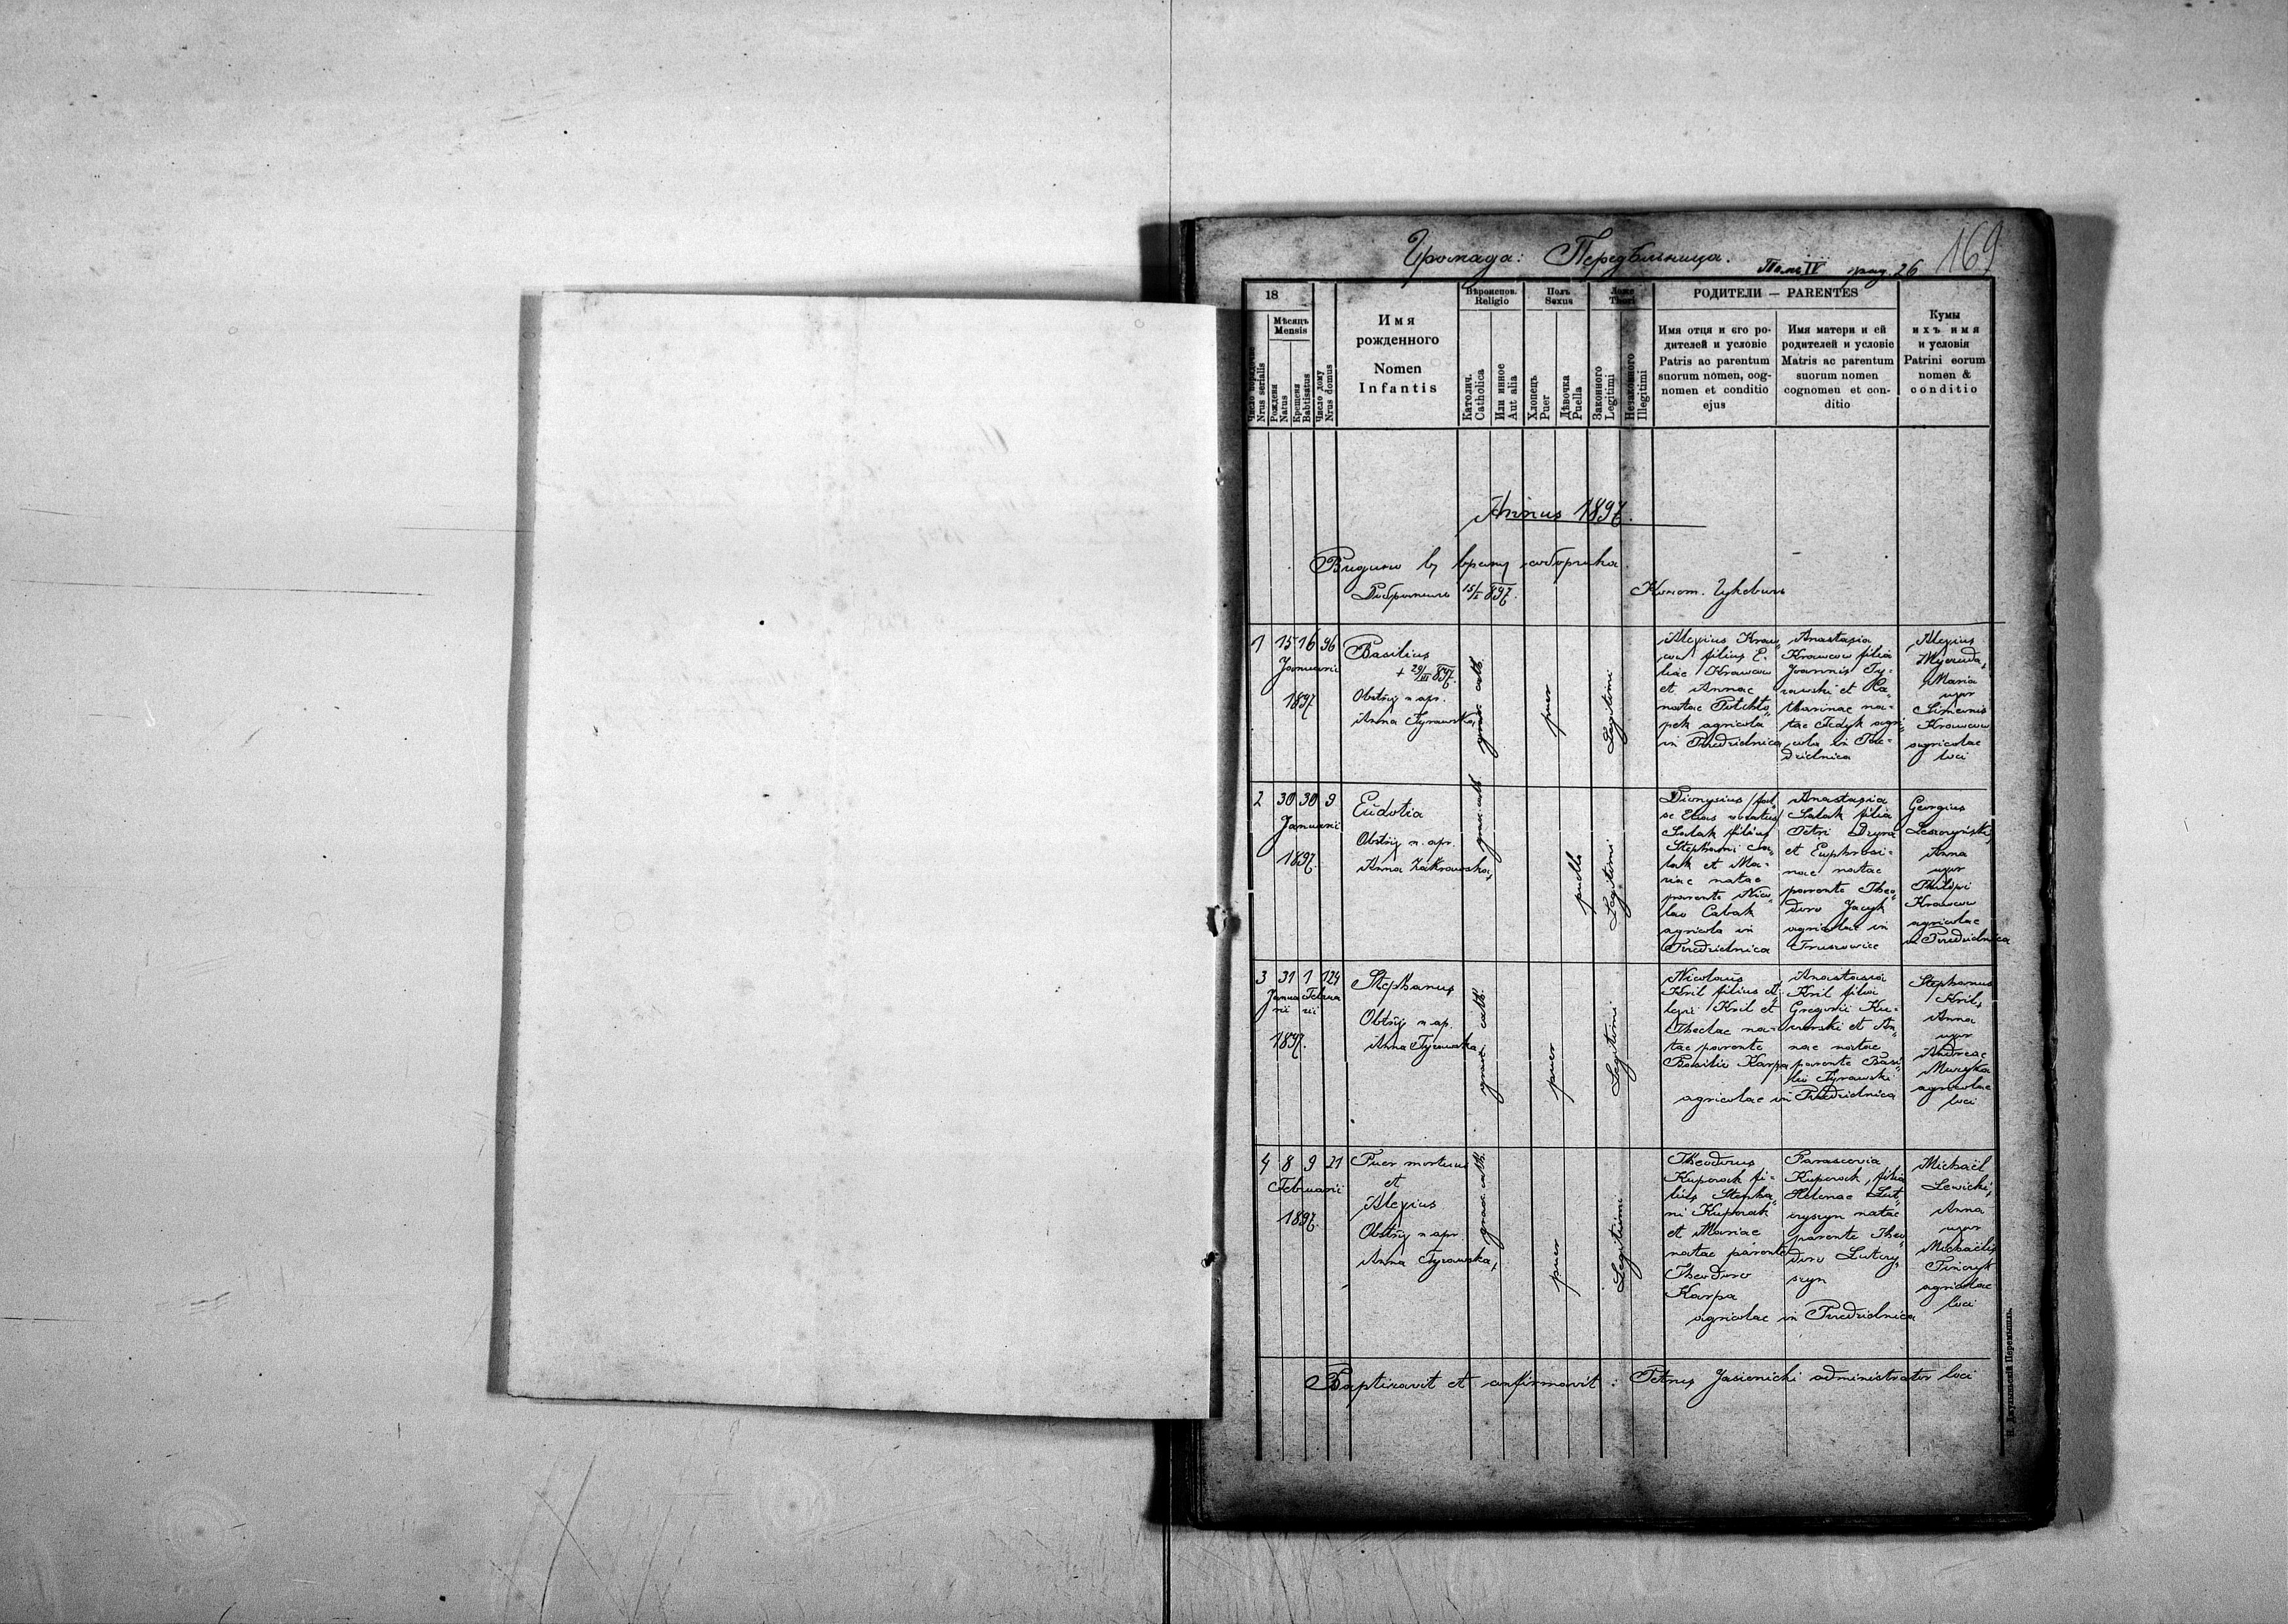 Громада: Передѣльница.
Томъ IV стр. 26
169
18
Мѣсяць
Mensis
Число порядкове
Nrus serialis
Рожденя
Natus
Крещеня
Babtisatus
Число дому
Nrus domus
Имя
рожденного
Nomen
Infantis
Вѣроиспов.
Religio
Католич.
Catholica
Или инное
Aut alia
Полъ
Sexus
Хлопець
Puer
Дѣвочка
Puella
Ложе
Thori
Законного
Legitimi
Незаконного
Illegitimi
РОДИТЕЛИ — PARENTES
Имя отця и єго ро-
дителей и условіе
Patris ac parentum
suorum nomen, cog-
nomen et conditio
ejus
Имя матери и ей
родителей и условіе
Matris ac parentum
suorum nomen
cognomen et con-
ditio
Кумы
ихъ имя
и условія
Patrini eorum
nomen &
conditio
Annus 1897.
Добромиль 15/I 897.
1 15 16 96
Januarii
1897
Basilius
+ 29/III 897.
Obstrij n. apr.
Anna Tyrawska,
graec. cath.
puer
Legitimi
Alexius Kraw-
cow filius E-
liae Krawcow
et Annae
natae
agricola
in Predzielnica
Anastasia
Krawcow filia
Joannis Ty-
rawski et Ka-
tharinae na-
tae Fedyk agri-
cola in Pre-
dzielnica
Alexius
Maria
uxor
Simeonis
Krawcow
agricolae
loci
2 30 30 9
Januarii
1897.
Eudotia
Obstrij n. apr.
Anna Zakrawska,
graec. cath.
puella
Legitimi
Dionysius
se Elias vocatus/
Salak filius
Stephani Sa-
lak et Ma-
riae natae
parente Nico-
lao Cabak
agricola in
Predzielnica
Anastasia
Salak filia
Petri Dzyra
et Euphrosi-
nae natae
parente Theo-
doro Jacyk
agricolae in
Truszowice
Georgius
Leszczynski,
Anna
uxor
Philippi
Krawcow
agricolae
in Predzielnica
3 31 1 124
Janua- Februa-
rii rii
1897.
Stephanus
Obstrij n. ap.
Anna Tyrawska,
graec. cath.
puer
Legitimi
Nicolaus
Kril filius A-
lexii Kril et
Theclae na-
tae parente
Basilio Karpa
Anastasia
Kril filia
Gregorii Ku-
warski et An-
nae natae
parente Basi-
lio Tyrawski
agricolae in Predzielnica
Stephanus
Kril,
Anna
uxor
Andreae
Muzyka
agricolae
loci
4 8 9 21
Februarii
1897.
Puer mortuus
et
Alexius
Obstrij n. apr.
Anna Tyrawska,
graec. cath.
puer
Legitimi
Theodorus
Kuporak fi-
lius Stepha-
ni Kuporak
et Mariae
natae parente
Theodoro
Karpa
Parascevia
Kuporak, filia
Helenae Lut-
cryszyn natae
parente Theo-
doro Lutcry-
szyn
agricolae in Predzielnica
Michaël
Lewicki,
Anna
uxor
Michaëlis
Pińczyk
agricolae
loci
Baptizavit et confirmavit: Petrus Jasienicki administrator loci
Н. Джулыньскій Перемышль.